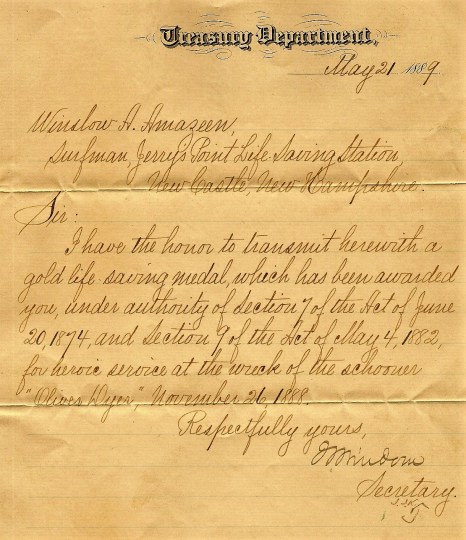 Treasury Department,
May 21 1889
Winslow A. Amazeen,
Surfman, Jerry's Point Life-Saving Station,
New Castle, New Hampshire.
Sir:
I have the honor to transmit herewith a
gold life-saving medal, which has been awarded
you, under authority of Section 7 of the Act of June
20, 1874, and Section 9 of the Act of May 4, 1882,
for heroic service at the wreck of the schooner
"Oliver Dyer," November 26, 1888.
Respectfully yours,
W Windom
Secretary.